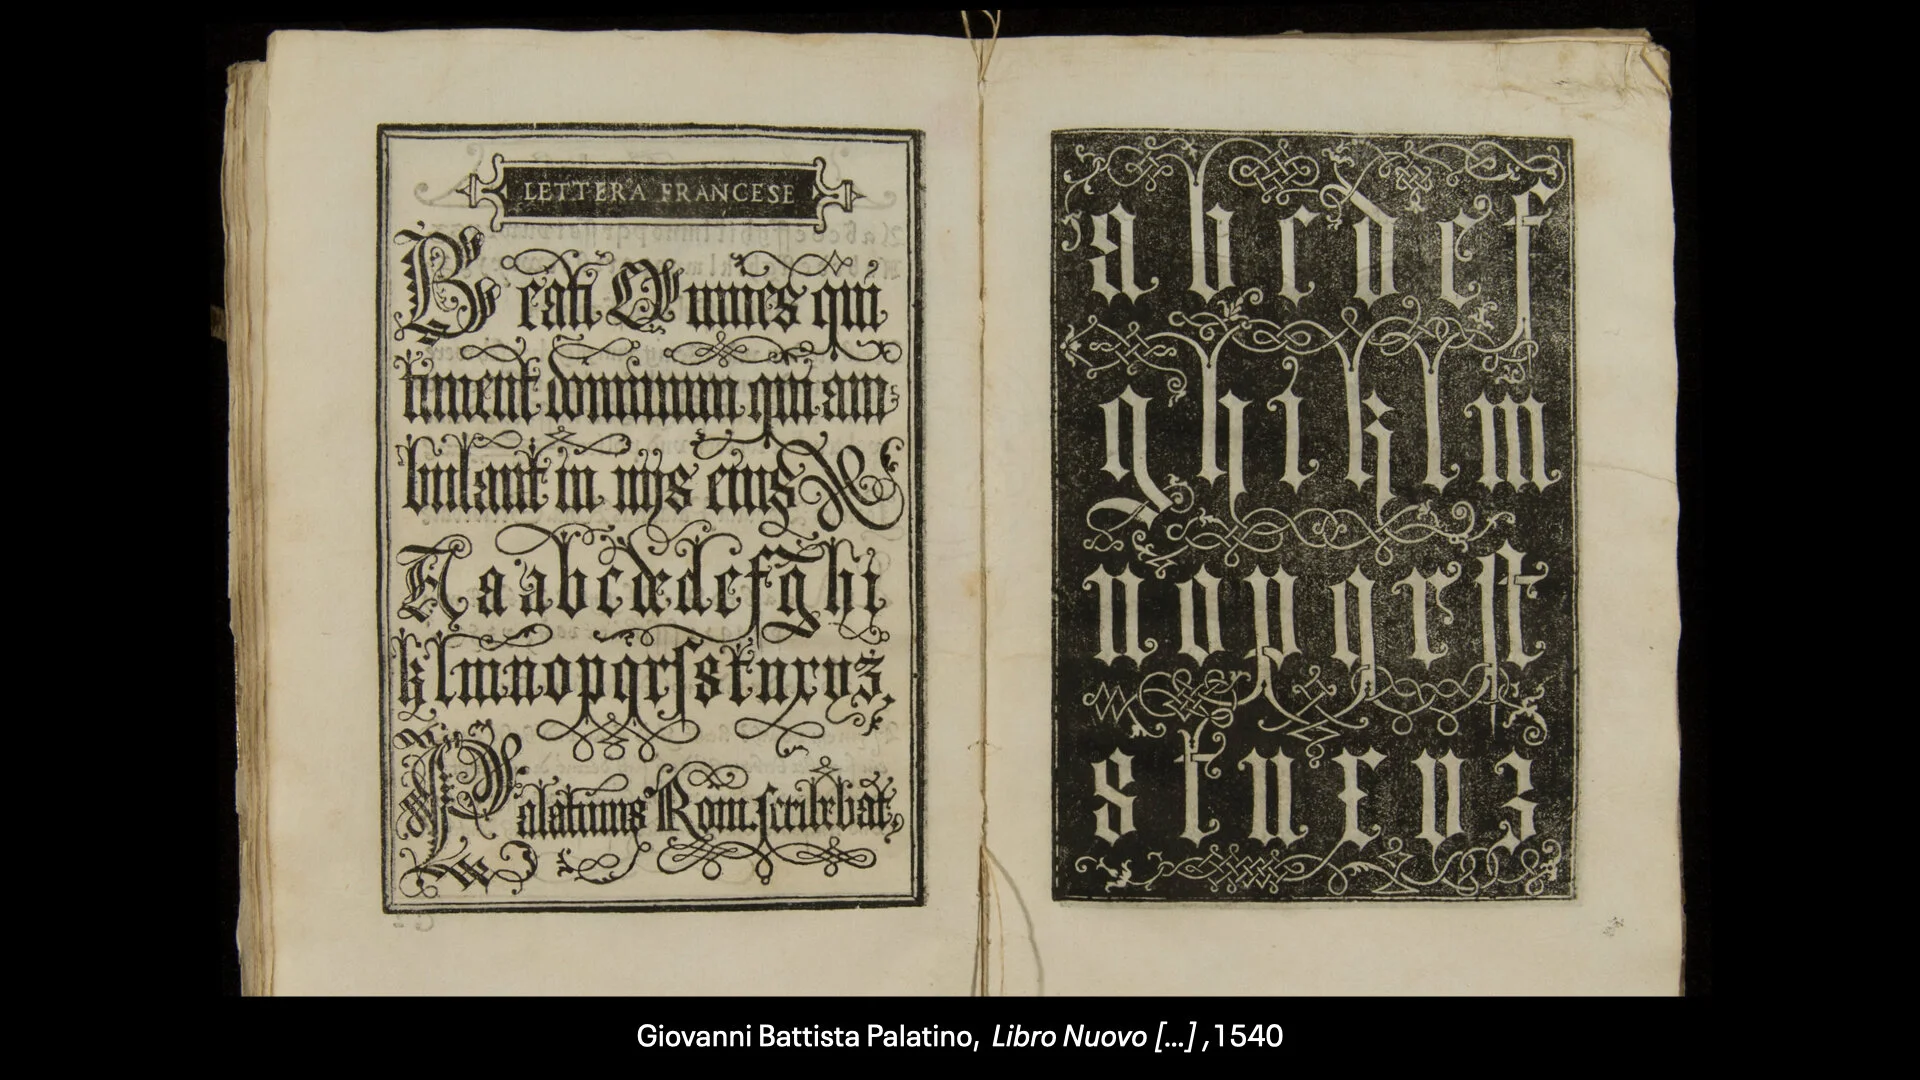 LETTERA FRANCESE
Beati Omnes qui
timent dominum qui am
bulant in uijs eius
A a a b c d e d e f g h i
k l m n o p q r ſ s t u x v z,
Palatinus Rom. ſcribebat,
a b c d e f
g h i k l m
n o p q r ſt
s t u x v z
Giovanni Battista Palatino, Libro Nuovo [...] ,1540